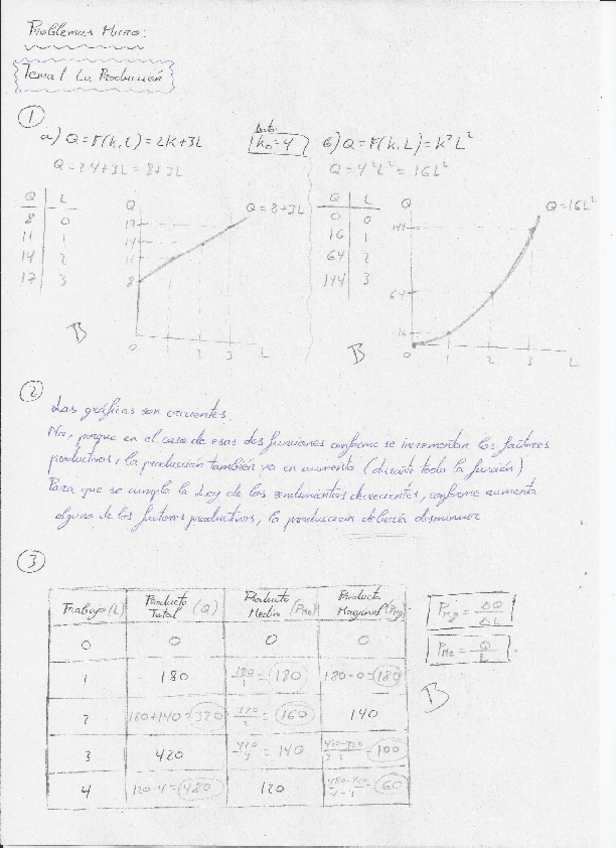 Problemas Micro:
Tema 1 La Producción
1
a) Q = F(k,L) = 2k+3L
Dato: k₀=4
b) Q = F(k,L) = k²L²
Q = 2·4+3L = 8+3L
Q = 4²L² = 16L²
Q L
8 0
11 1
14 2
17 3
Q
17
14
11
8
0 1 2 3 L
Q = 8+3L
B
Q L
0 0
16 1
64 2
144 3
Q
144
64
16
0 1 2 3 L
Q = 16L²
B
2
Las gráficas son crecientes.
No, porque en el caso de esas dos funciones conforme se incrementan los factores
productivos, la producción también va en aumento (durante toda la función)
Para que se cumpla la Ley de los rendimientos decrecientes, conforme aumenta
alguno de los factores productivos, la producción debería disminuir.
3
Trabajo (L) Producto Total (Q) Producto Medio (PMe) Producto Marginal (PMg)
0 0 0 0
1 180 180/1 = 180 180-0 = 180
2 180+140 = 320 320/2 = 160 140
3 420 420/3 = 140 420-320/3-2 = 100
4 120·4 = 480 120 480-420/4-3 = 60
PMg = ΔQ/ΔL
PMe = Q/L
B